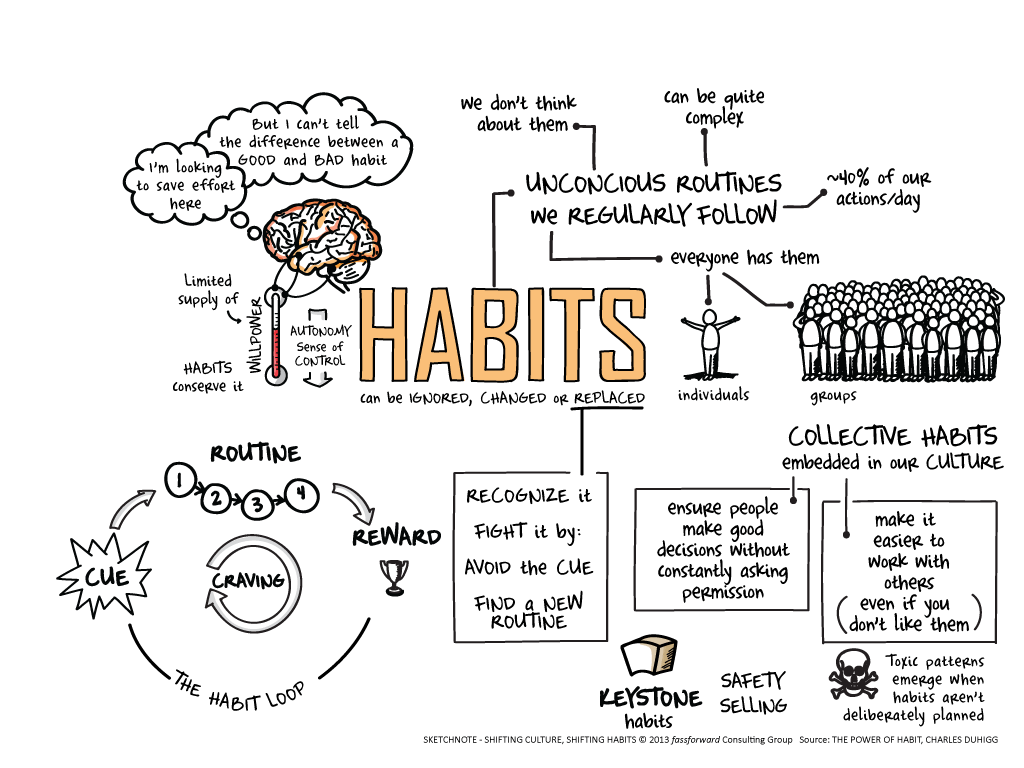 But I can't tell
the difference between a
GOOD and BAD habit
I'm looking
to save effort
here
we don't think
about them
can be quite
complex
UNCONCIOUS ROUTINES
we REGULARLY FOLLOW
~40% of our
actions/day
everyone has them
individuals
groups
Limited
supply of
WILLPOWER
HABITS
conserve it
AUTONOMY
Sense of
CONTROL
HABITS
can be IGNORED, CHANGED or REPLACED
ROUTINE
1
2
3
4
CUE
CRAVING
REWARD
THE HABIT LOOP
RECOGNIZE it
FIGHT it by:
AVOID the CUE
FIND a NEW
ROUTINE
COLLECTIVE HABITS
embedded in our CULTURE
ensure people
make good
decisions without
constantly asking
permission
make it
easier to
work with
others
(even if you
don't like them)
KEYSTONE
habits
SAFETY
SELLING
Toxic patterns
emerge when
habits aren't
deliberately planned
SKETCHNOTE - SHIFTING CULTURE, SHIFTING HABITS © 2013 fassforward Consulting Group Source: THE POWER OF HABIT, CHARLES DUHIGG